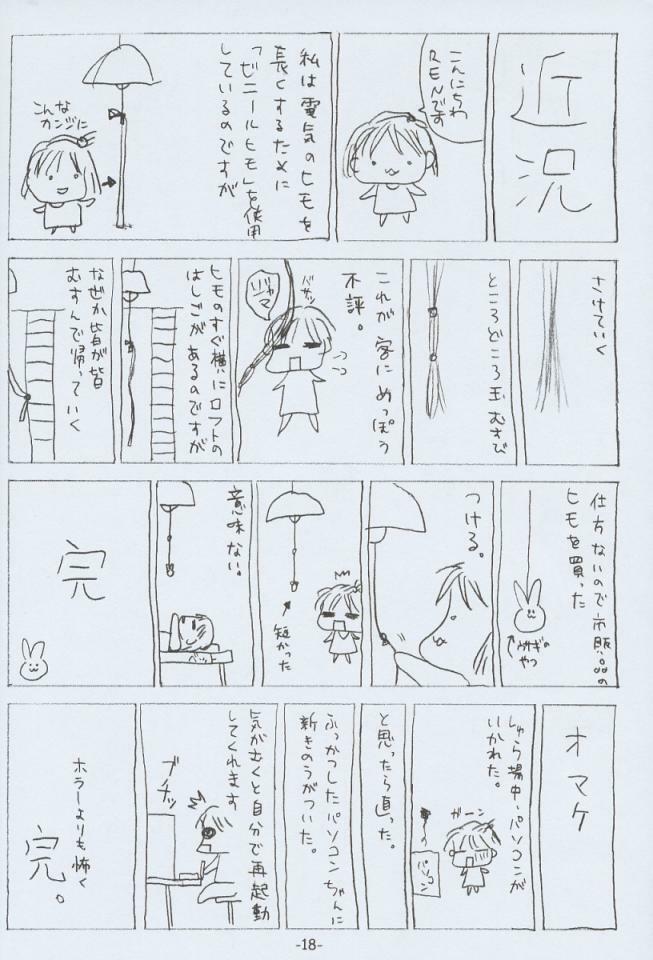 近況
こんにちわ
RENです
私は電気のヒモを
長くするために
「ビニールヒモ」を使用
しているのですが
こんな
カンジに
さけていく
ところどころ玉むすび
これが客にめっぽう
不評。
バサッ
ジャマ
ヒモのすぐ横にロフトの
はしごがあるのですが
なぜか皆が皆
むすんで帰っていく
仕方ないので市販品の
ヒモを買った
ウサギの
やつ
つける。
短かった
意味ない。
ベット
完
オマケ
しゅら場中、パソコンが
いかれた。
ガーン
パソコン
と思ったら直った。
ふっかつしたパソコンちゃんに
新きのうがついた。
気がむくと自分で再起動
してくれます
ブチッ
ホラーよりも怖く
完。
-18-